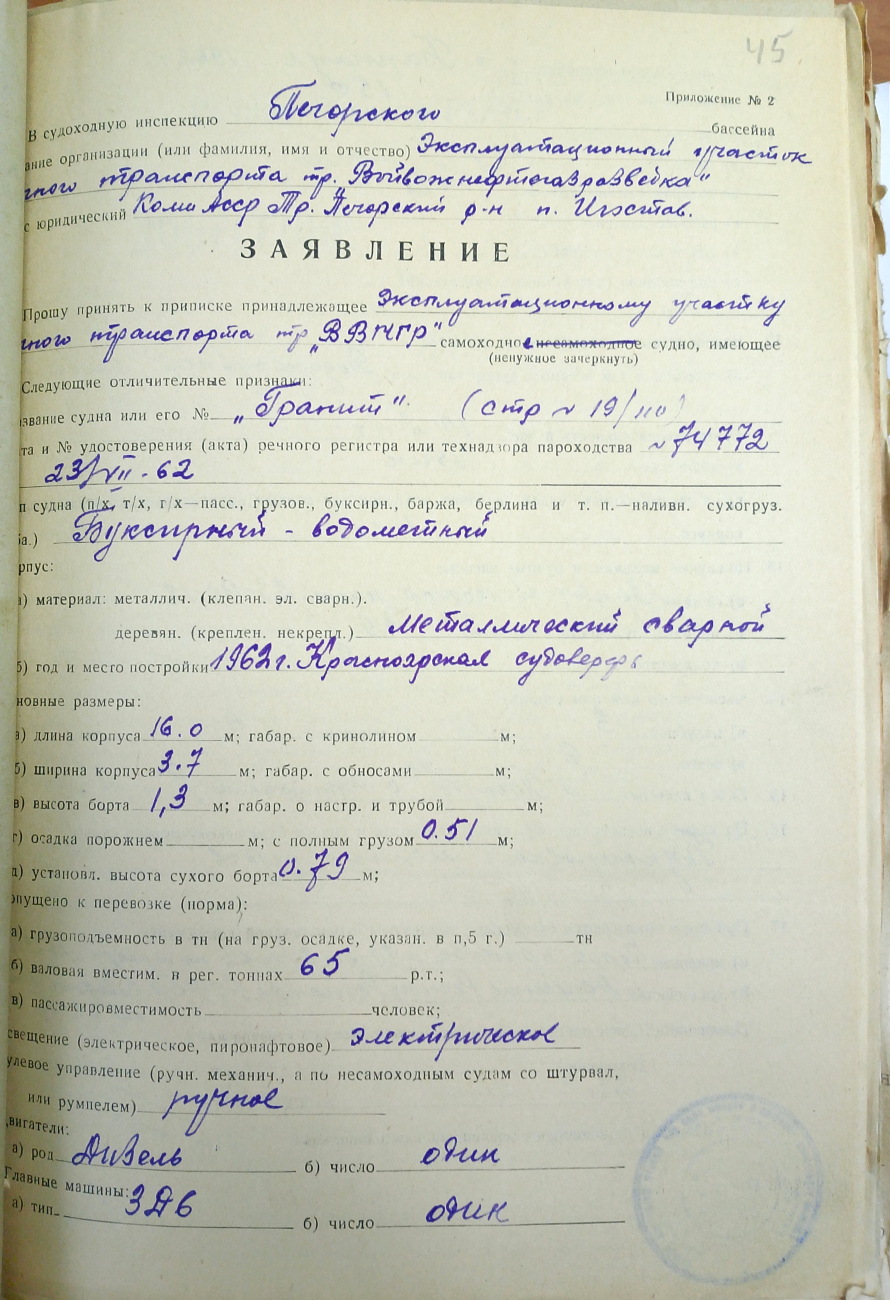 45
Приложение № 2
В судоходную инспекцию Печорского бассейна
ание организации (или фамилия, имя и отчество) Эксплуатационный участок
ного транспорта тр. "Войвожнефтогазразведка"
с юридический Коми Асср Тр. Печорский р-н п.
ЗАЯВЛЕНИЕ
Прошу принять к приписке принадлежащее Эксплуатационному участку
ного транспорта тр "ВВНГР" самоходное несамоходное судно, имеющее
(ненужное зачеркнуть)
Следующие отличительные признаки:
азвание судна или его № "Гранит" (стр № 19/110)
та и № удостоверения (акта) речного регистра или технадзора пароходства № 74772
23/VII-62
п судна (п/х, т/х, г/х—пасс., грузов., буксирн., баржа, берлина и т. п.—наливн. сухогруз.
ба.) Буксирный - водометный
рпус:
а) материал: металлич. (клепан. эл. сварн.).
деревян. (креплен. некрепл.) Металлический сварной
б) год и место постройки 1962 г. Красноярская судоверфь
новные размеры:
а) длина корпуса 16.0 м; габар. с кринолином м;
б) ширина корпуса 3.7 м; габар. с обносами м;
в) высота борта 1,3 м; габар. о настр. и трубой м;
г) осадка порожнем м; с полным грузом 0.51 м;
д) установл. высота сухого борта 0.79 м;
опущено к перевозке (норма):
а) грузоподъемность в тн (на груз. осадке, указан. в п,5 г.) тн
б) валовая вместим. в рег. тоннах 65 р.т.;
в) пассажировместимость человек;
свещение (электрическое, пиронафтовое) электрическое
улевое управление (ручн. механич., а по несамоходным судам со штурвал,
или румпелем) ручное
двигатели:
а) род Дизель б) число один
Главные машины:
а) тип 3Д6 б) число один